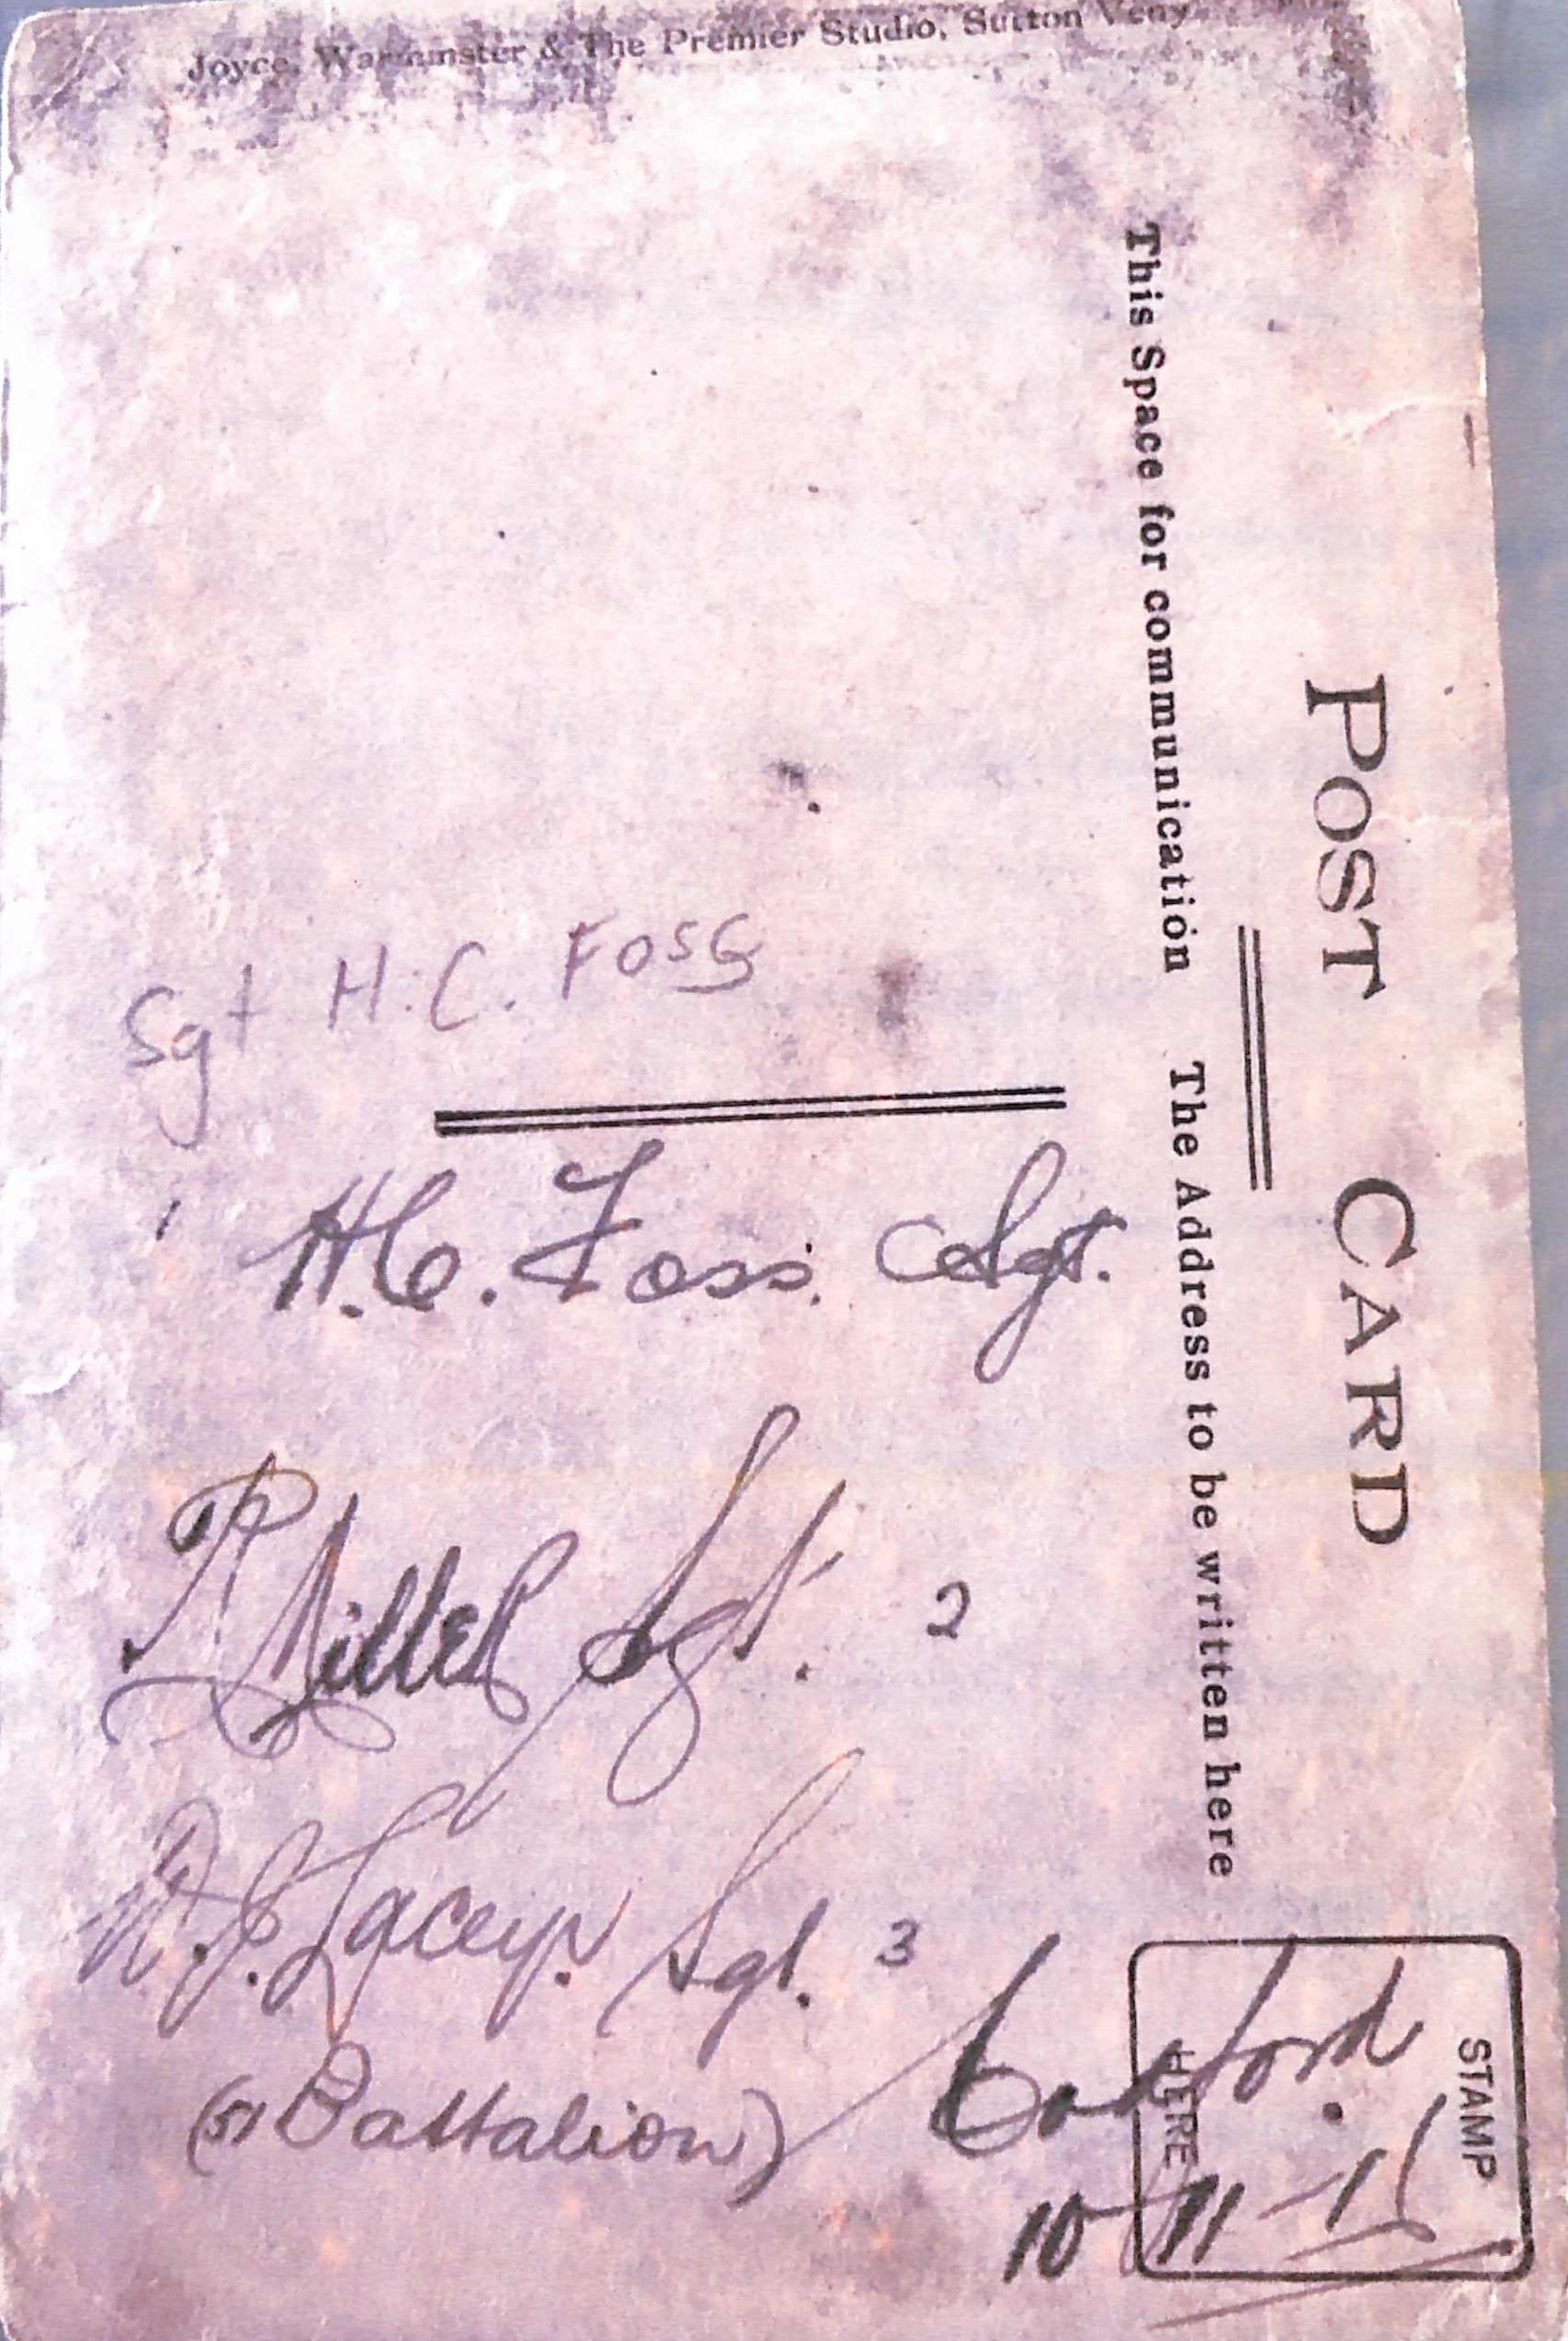 Joyce, Warminster & The Premier Studio, Sutton Veny
POST CARD
This Space for communication
The Address to be written here
STAMP
HERE
Sgt H.C. Foss
1 H.C. Foss. Sgt.
Miller Sgt. 2
Lacey. Sgt. 3
(51 Battalion)
Codford.
10-11-1